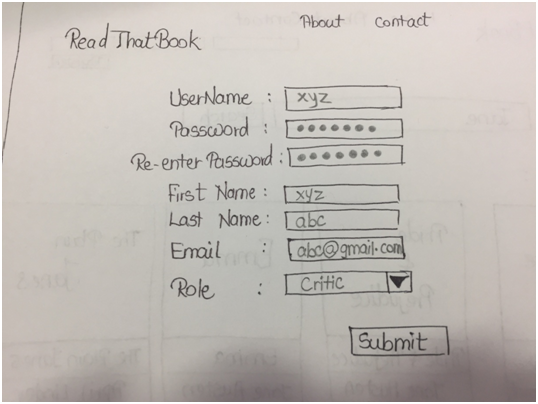 About contact
ReadThatBook
UserName : xyz
Password : •••••••
Re-enter Password : •••••••
First Name : xyz
Last Name : abc
Email : abc@gmail.com
Role : Critic
Submit